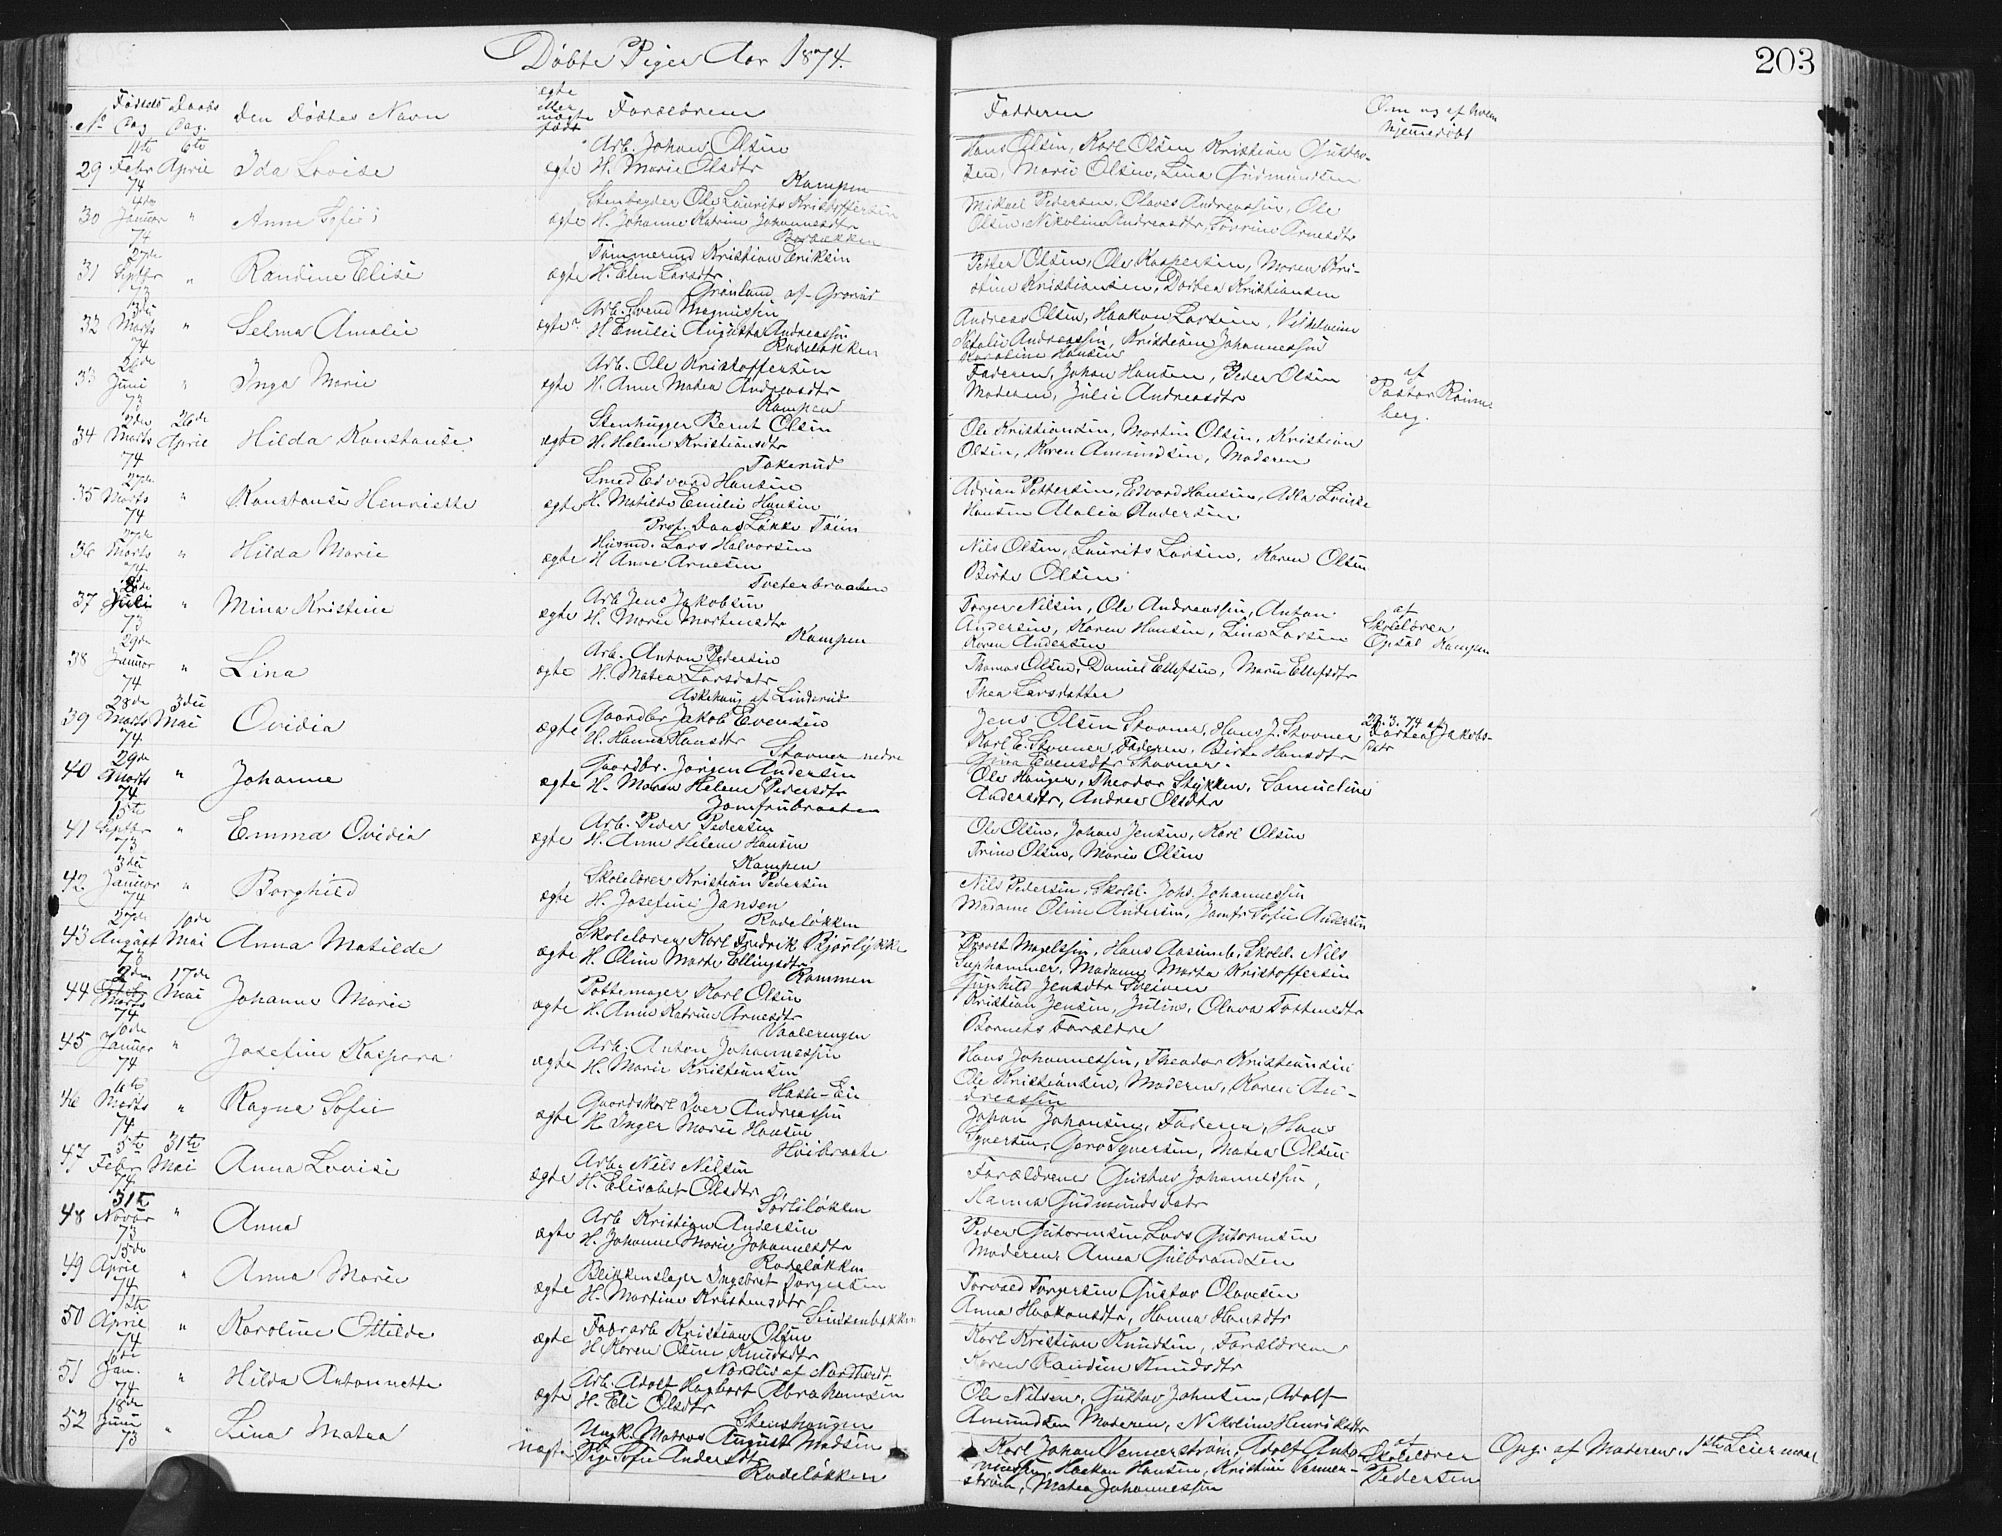 Døbte Piger Aar 1874.
203
No Fødsels Dag Daabs Dag. Den Døbtes Navn ægte eller uægte født Forældrene Fadderne Om og af hvem hjemmedøbt
29 11te Febr 74 6te April Ida Lovise ægte Arb. Johan Olsen
H. Marie Olsdtr
Kampen
Hans Olsen, Karl Olsen Kristian Gustav-
sen, Marie Olsen, Lina Gudmundsen
30 Januar 74 " Anne Sofie ægte Stenbryder Ole Laurits Kristoffersen
H. Johanne Katrine Johannesdtr
Mikael Pedersen, Olaves Andreassen, Ole
Olsen, Nikoline Andreasdtr, Arnesdtr
31 27de Septbr 73 " Randine Elise ægte Tømmermd Kristian Eriksen
H. Elen Larsdtr
Grønland af Grorud
Petter Olsen, Ole Kaspersen, Maren Kri-
stine Kristiansen, Dortea Kristiansen
32 13de Marts 74 " Selma Amalie ægte Arb. Svend Magnussen
H. Emilie Augusta Andreassen
Rodeløkken
Andreas Olsen, Haakon Larsen, Vilhelmine
Natalie Andreassen, Kristian Johannessen
Karoline Hansen
33 26de Juni 73 " Inga Marie ægte Arb. Ole Kristoffersen
H. Anne Matea Andreasdtr
Kampen
Faderen, Johan Hansen, Peder Olsen
Moderen, Julie Andreasdtr
af
Pastor Rønne-
berg.
34 2den Marts 74 26de April Hilda Konstanse ægte Stenhugger Bernt Olsen
H. Helene Kristiansdtr
Tokerud
Ole Kristiansen, Martin Olsen, Kristian
Olsen, Karen Amundsen, Moderen
35 27de Marts 74 " Konstanse Henriette ægte Smed Edvard Hansen
H. Matilde Emilie Hansen
Prof. Daas Løkke Tøien
Adrian Pettersen, Edvard Hansen, Adla Lovise
Hansen Atalia Andersen
36 Marts 74 " Hilda Marie ægte Husmd. Lars Halvorsen
H. Anne Arnesen
Tveterbraaten
Nils Olsen, Laurits Larsen, Karen Olsen
Birte Olsen
37 Juli 73 " Mina Kristine ægte Arb. Jens Jakobsen
H. Marie Mortensdtr
Kampen
Torger Nilsen, Ole Andreassen, Anton
Andersen, Karen Hansen, Lina Larsen
Karen Andersen
af
Skolelærer
Opsal Kampen
38 29de Januar 74 " Lina ægte Arb. Anton Pedersen
H. Matea Larsdatr
Askehaug af Linderud
Thomas Olsen, Daniel Ellefsen, Marie Ellefsdtr
Thea Larsdatter
39 28de Marts 74 3die Mai Ovidia ægte Gaardbr Jakob Evensen
H. Hanna Hansdtr
Stovner nedre
Jens Olsen Stovner, Hans J. Stovner
Karl E. Stovner, Faderen, Birte Hansdtr
Evensdtr Stovner.
28.3.74 af
Dortea Jakobs-
dtr
40 29de Marts 74 " Johanne ægte Gaardbr. Jørgen Andersen
H. Maren Helene Pedersdtr
Jomfrubraaten
Ole Hauger, Theodor Stykken, Samueline
Andersdtr, Andrea Olsdtr
41 15te Septbr 73 " Emma Ovidia ægte Arb. Peder Pedersen
H. Anne Helene Hansen
Kampen
Ole Olsen, Johan Jensen, Karl Olsen
Trine Olsen, Marie Olsen
42 3die Januar 74 " Borghild ægte Skolelærer Kristian Pedersen
H. Josefine Jansen
Rodeløkken
Nils Pedersen, Skolel. Johs. Johannessen
Madame Oline Andersen, Jomfr Sofie Andersen
43 27de August 73 10de Mai Anna Matilde ægte Skolelærer Karl Fredrik Bjørlykke
H. Oline Marte Ellingsdtr
Rommen
Provst Magelssen, Hans Aasund, Skolel. Nils
Suphammer, Madame Marta Kristoffersen
Jensdtr Sveiven
44 2den Marts 74 17de Mai Johanne Marie ægte Pottemager Karl Olsen
H. Anne Katrine Arnesdtr
Vaalerengen
Kristian Jensen, Julius, Olava Tostensdtr
Barnets Forældre
45 6de Januar 74 " Josefine Kaspara ægte Arb. Anton Johannessen
H. Marie Kristiansen
Hasle-Eie
Hans Johannessen, Theodor Kristiansen
Ole Kristiansen, Moderen, Karen An-
dreassen
46 11te Marts 74 " Ragna Sofie ægte Gaardskarl Iver Andreassen
H. Inger Marie Hansen
Høibraaten
Johan Johansen, Faderen, Hans
Syversen, Goro Syversen, Matea Olsen
47 5te Febr 74 31te Mai Anna Lovise ægte Arb. Nils Nilsen
H. Elisabet Olsdtr
Sørliløkken
Forældrene Gustav Johannessen,
Hanna Gudmundsdatr
48 Novbr 73 " Anna ægte Arb Kristian Andersen
H. Johanne Marie Johannesdtr
Rodeløkken
Peder Gutormsen, Lars Gutormsen
Moderen, Anna Gulbrandsen
49 15de April 74 " Anna Marie ægte Blikkenslager Ingebret Torgersen
H. Martine Kristensdtr
Sinsenbakken
Torvald Torgersen, Gustav Olavesen
Anna Haakonsdtr, Hanna Hansdtr
50 April 74 " Karoline Ottilde ægte Fabrarb Kristian Olsen
H Karen Oline Knudsdtr
Nordlid af Nordtvedt
Karl Kristian Knudsen, Forældrene
Karen Randine Knudsdtr
51 Jan. 74 " Hilda Antonnette ægte Arb. Adolf Hagbart Abrahamsen
H. Eli Olsdtr
Stenshaugen
Ole Nilsen, Gustav Johnsen, Adolf
Amundsen Moderen, Nikoline Henriksdtr
52 18de Juni 73 " Lina Matea uægte Ungk. Matros August Madsen
Pige Sofie Andersdtr
Rodeløkken
Karl Johan Vennerstrøm, Adolf Anto-
niussen, Haakon Hansen, Kristine Venner-
strøm, Matea Johannessen
af
Skolelærer
Pedersen
Opg. af Moderen. 1ste Leiermaal